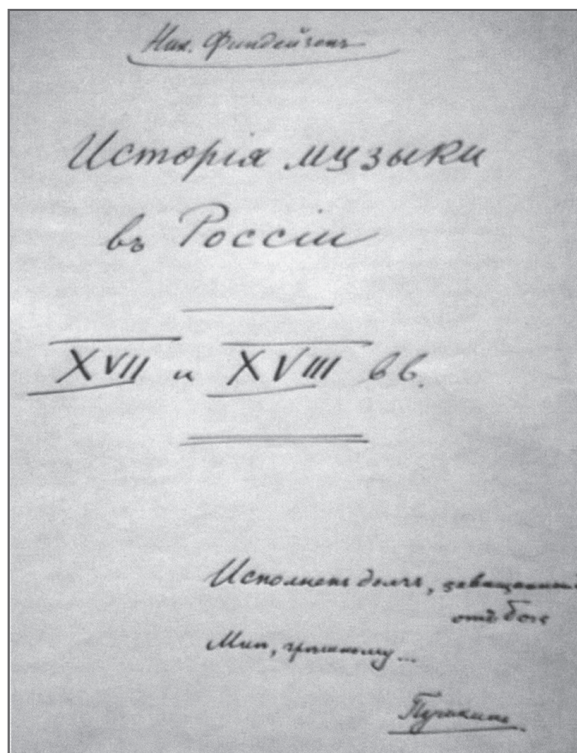 Ник. Финдейзенъ
Исторія музыки
въ Россіи
XVII и XVIII вв.
Исполненъ долгъ, завещанный
отъ Бога
Мнѣ, грѣшному...
Пушкинъ